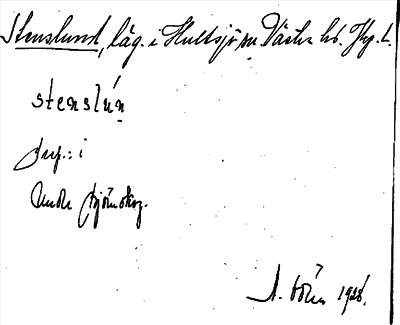 Stenslund, läg. i Hultsjö sn Västra hd. Jkp. l.
stenslún
prep.: i
Under Björnskog.
1928.